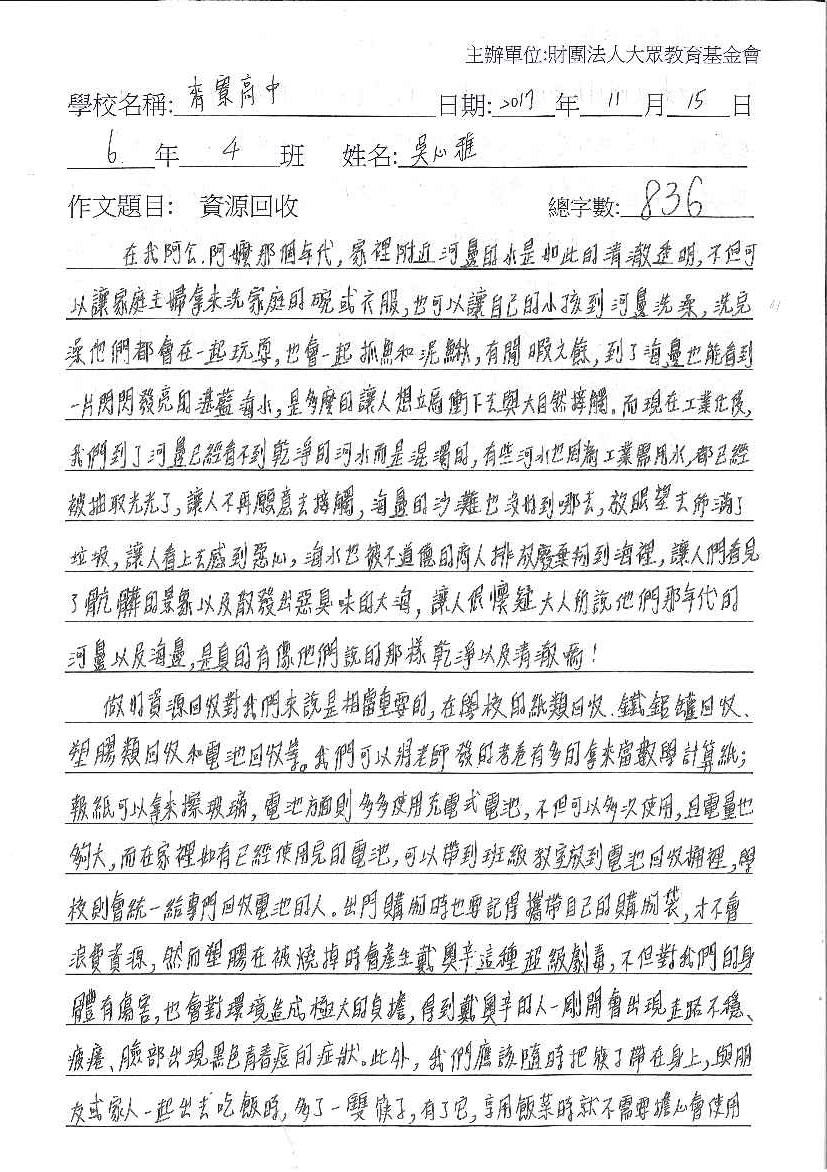 主辦單位:財團法人大眾教育基金會
學校名稱: 齊寶高中 日期: 2017 年 11 月 15 日
6 年 4 班 姓名: 吳心雅
作文題目: 資源回收 總字數: 836
在我阿公、阿嬤那個年代,家裡附近河邊的水是如此的清澈透明,不但可
以讓家庭主婦拿來洗家庭的碗或衣服,也可以讓自己的小孩到河邊洗澡,洗完
澡他們都會在一起玩耍,也會一起抓魚和泥鰍,有閒暇之餘,到了海邊也能看到
一片閃閃發亮的湛藍海水,是多麼的讓人想立馬衝下去與大自然接觸。而現在工業化後,
我們到了河邊已經看不到乾淨的河水而是混濁的,有些河水也因為工業需用水,都已經
被抽取光光了,讓人不再願意去接觸,海邊的沙灘也沒好到哪去,放眼望去佈滿了
垃圾,讓人看上去感到惡心,海水也被不道德的商人排放廢棄物到海裡,讓人們看見
了骯髒的景象以及散發出惡臭味的大海,讓人很懷疑大人所說他們那年代的
河邊以及海邊,是真的有像他們說的那樣乾淨以及清澈嗎!
做好資源回收對我們來說是相當重要的,在學校的紙類回收、鐵鋁罐回收、
塑膠類回收和電池回收等。我們可以將老師發的考卷有多的拿來當數學計算紙;
報紙可以拿來擦玻璃,電池方面則多多使用充電式電池,不但可以多次使用,且電量也
夠大,而在家裡如有已經使用完的電池,可以帶到班級教室放到電池回收桶裡,學
校則會統一給專門回收電池的人。出門購物時也要記得攜帶自己的購物袋,才不會
浪費資源,然而塑膠在被燒掉時會產生戴奧辛這種超級劇毒,不但對我們的身
體有傷害,也會對環境造成極大的負擔,得到戴奧辛的人一剛開會出現走路不穩、
疲倦、臉部出現黑色青春痘的症狀。此外,我們應該隨時把筷子帶在身上,與朋
友或家人一起出去吃飯時,多了一雙筷子,有了它,享用飯菜時就不需要擔心會使用